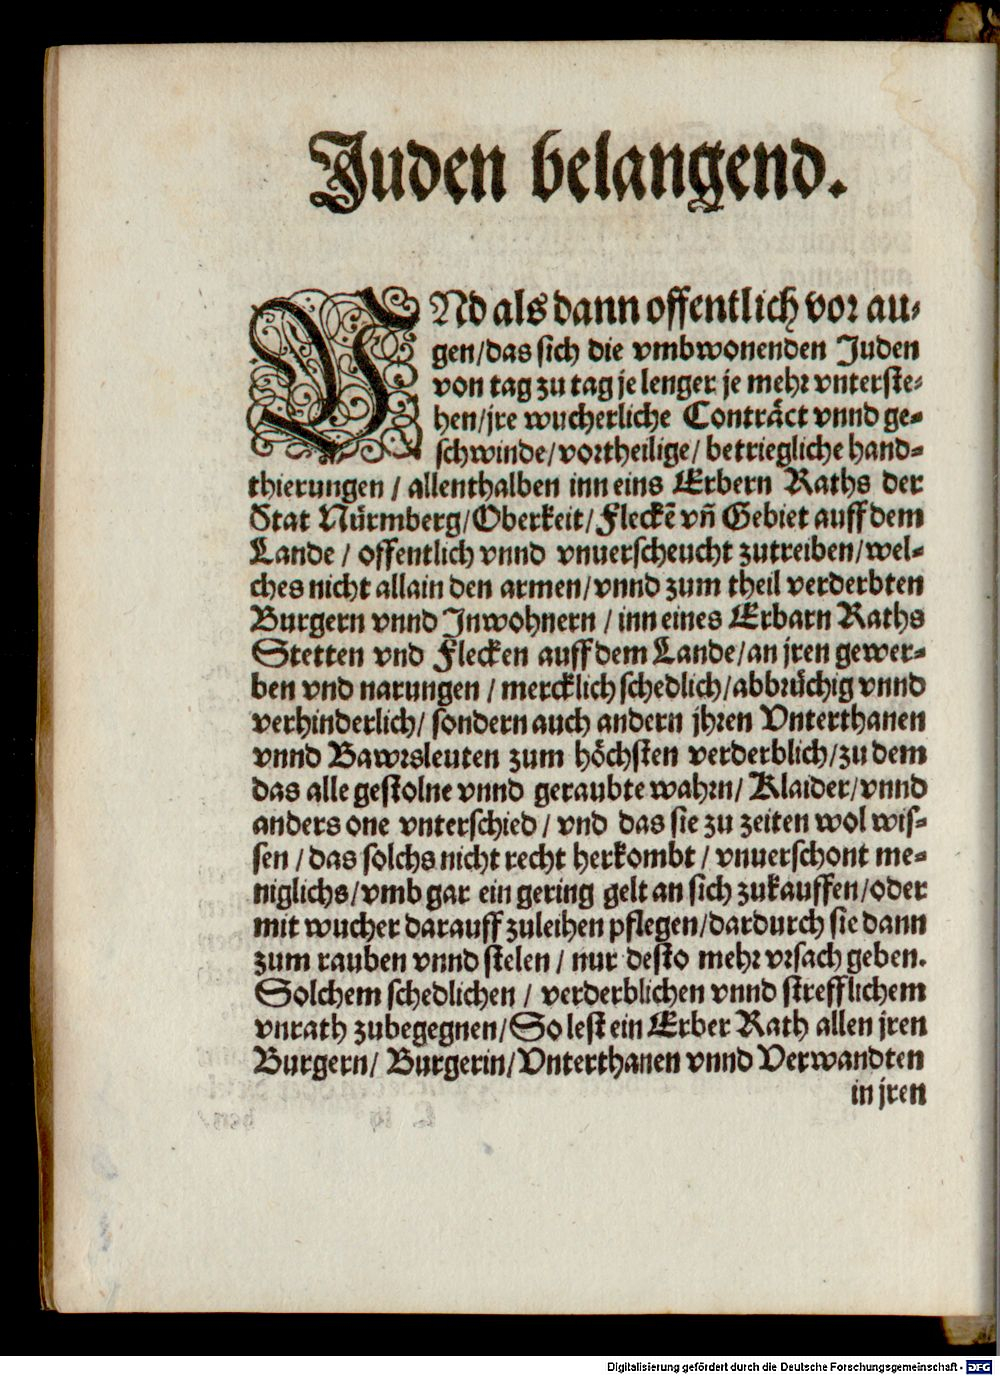 Juden belangend.
VNd als dann offentlich vor au⸗
gen/das sich die vmbwonenden Juden
von tag zu tag je lenger je mehr vnterste⸗
hen/jre wucherliche Conträct vnnd ge⸗
schwinde/vortheilige/betriegliche hand⸗
thierungen/allenthalben inn eins Erbern Raths der
Stat Nürmberg/Oberkeit/Fleckẽ vñ Gebiet auff dem
Lande/offentlich vnnd vnuerscheucht zutreiben/wel⸗
ches nicht allain den armen/vnnd zum theil verderbten
Burgern vnnd Inwohnern/inn eines Erbarn Raths
Stetten vnd Flecken auff dem Lande/an jren gewer⸗
ben vnd narungen/mercklich schedlich/abbrüchig vnnd
verhinderlich/sondern auch andern jhren Vnterthanen
vnnd Bawrsleuten zum höchsten verderblich/zu dem
das alle gestolne vnnd geraubte wahrn/Klaider/vnnd
anders one vnterschied/vnd das sie zu zeiten wol wis⸗
sen/das solchs nicht recht herkombt/vnuerschont me⸗
niglichs/vmb gar ein gering gelt an sich zukauffen/oder
mit wucher darauff zuleihen pflegen/dardurch sie dann
zum rauben vnnd stelen/nur desto mehr vrsach geben.
Solchem schedlichen/verderblichen vnnd strefflichem
vnrath zubegegnen/So lest ein Erber Rath allen jren
Burgern/Burgerin/Vnterthanen vnnd Verwandten
in jren
Digitalisierung gefördert durch die Deutsche Forschungsgemeinschaft - DFG